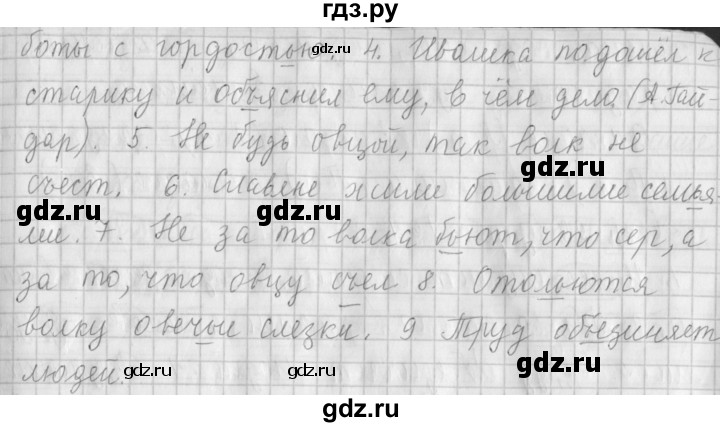 гдз.ру
боты с гордостью. 4. Ивашка подошёл к
gdz.ru gdz.ru gdz.ru
старику и объяснил ему, в чём дело (А. Гай-
дар). 5. Не будь овцой, так волк не
съест. 6. Славяне жили большими семья-
gdz.ru gdz.ru gdz.ru
ми. 7. Не за то волка бьют, что сер, а
за то, что овцу съел 8. Отольются
волку овечьи слезки. 9 Труд объединяет
людей.
gdz.ru gdz.ru gdz.ru
gdz.ru